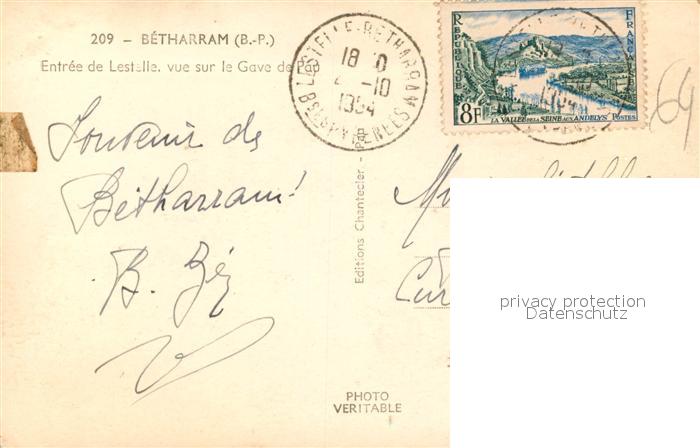 209 – BÉTHARRAM (B.-P.)
Entrée de Lestelle, vue sur le Gave de Pau
LESTELLE-BÉTHARRAM
18 0
-10
1954
BSES PYRENEES
RÉPUBLIQUE FRANÇAISE
8F
LA VALLÉE DE LA SEINE AUX ANDELYS POSTES
64
Souvenir de
Bétharram!
B.
Editions Chantecler - Pau
privacy protection
Datenschutz
PHOTO
VERITABLE